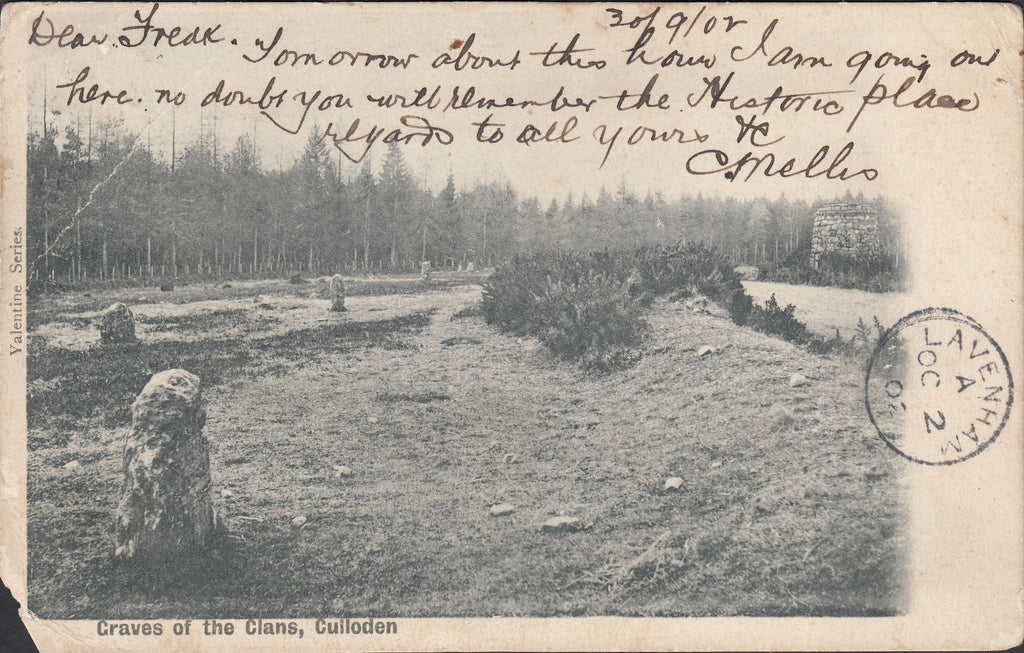 30/9/02
Dear Freak. Tomorrow about this hour I am going out
here. no doubt you will remember the Historic place
regards to all yours &c
C Mellis
Valentine Series
LAVENHAM
A
OC 2
02
Graves of the Clans, Culloden